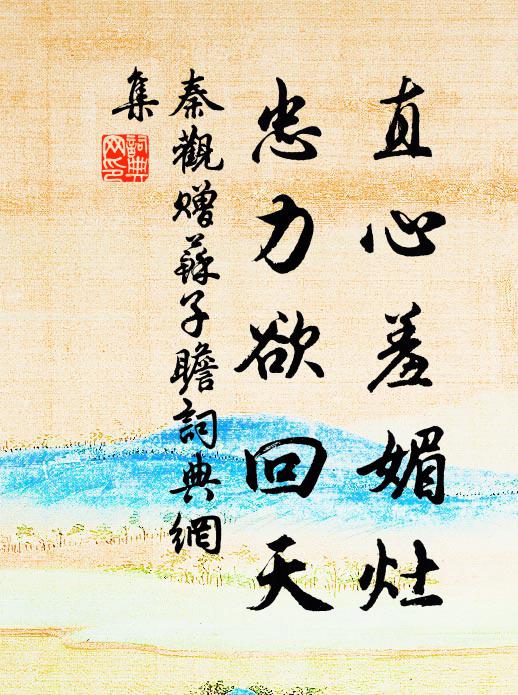 直心羞媚灶
忠力欲回天
秦觀赠蘇子瞻詞典網
集
詞典
网印